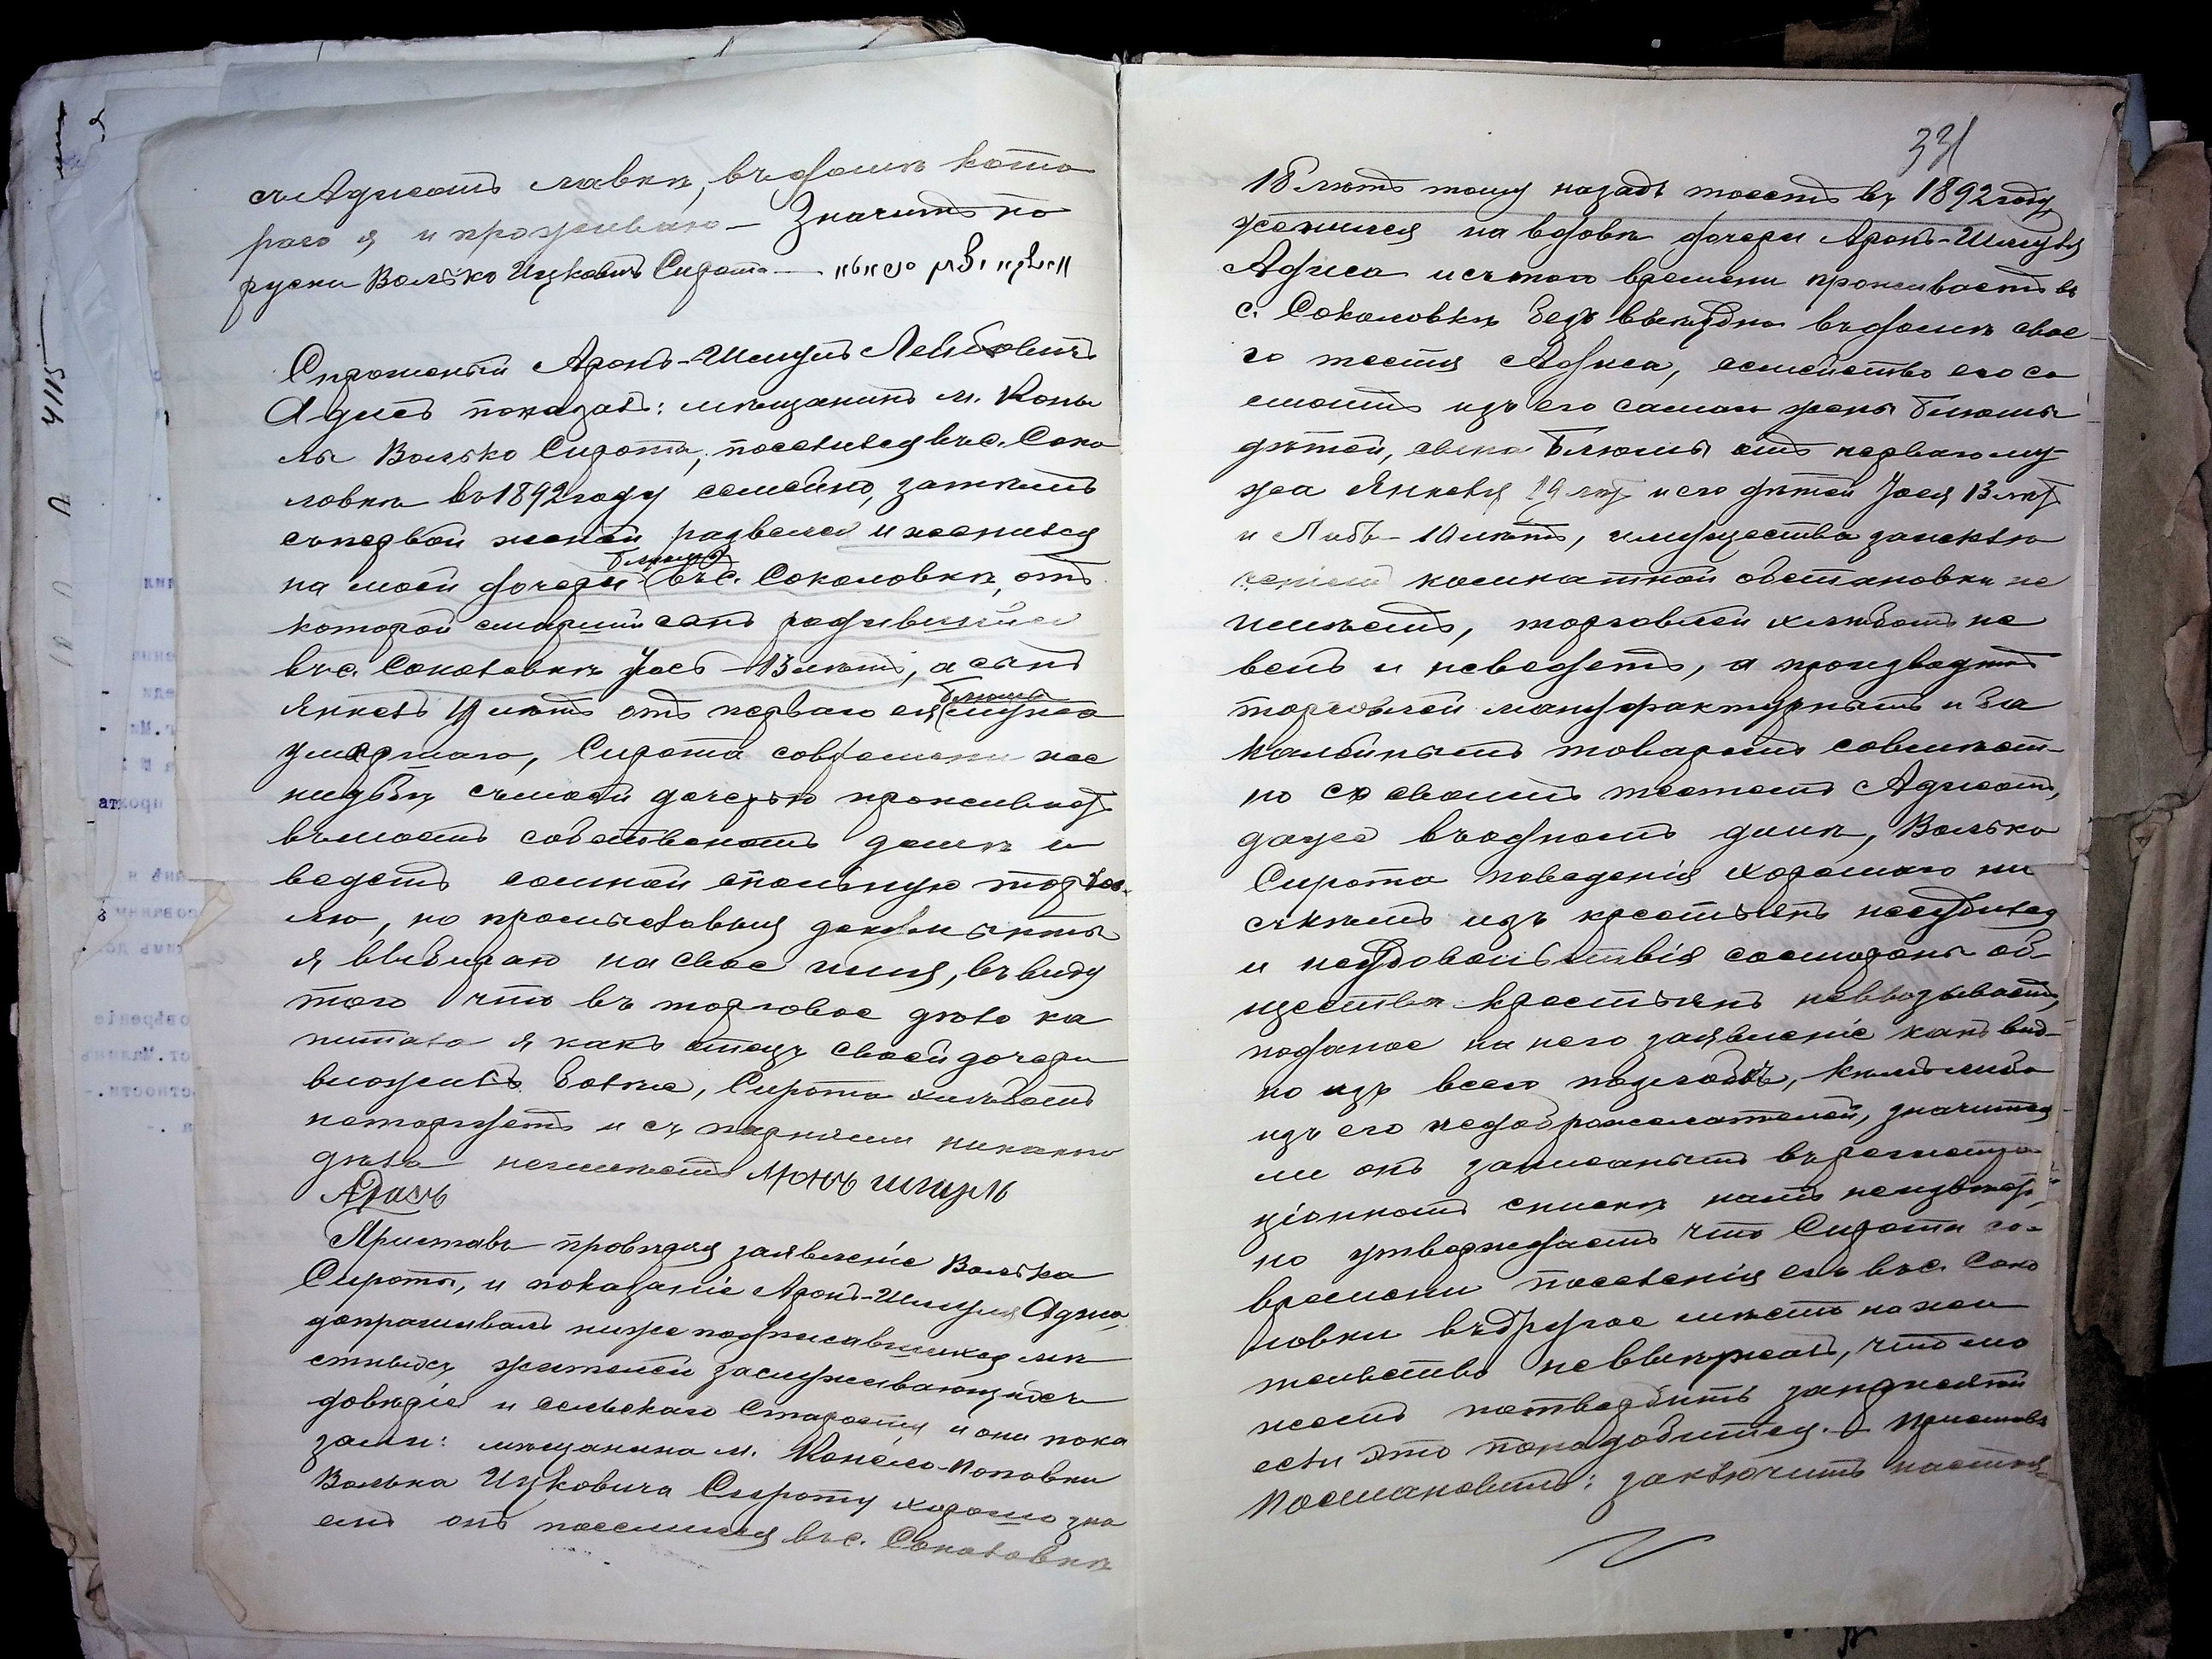 съ Адисомъ лавки, въ домѣ кото
раго я и проживаю — Значитъ по
руски Волько Ицковичъ Сирота —
Спрошеный Аронъ-Шмуль Лейбовичъ
Адисъ показалъ: мѣщанинъ м. Коне
лы Волько Сирота, поселился въ с. Соко
ловкѣ въ 1892 году семейно, затѣмъ
съ первой женой развелся и женился
Блюмѣ
на моей дочери въ с. Соколовкѣ, отъ
которой старшій сынъ родившійся
въ с. Соколовкѣ Іось 13 лѣтъ, а сынъ
Блюмы
Янкель 19 лѣтъ отъ перваго ея мужа
умершаго, Сирота со времени же
нидьбы съ моей дочерью проживаетъ
въ моемъ собственомъ домѣ и
ведетъ со мной спольную торгов
лю, но промысловыя документы
я выбираю на свое имя, въ виду
того что въ торговое дѣло ка
питала я какъ отецъ своей дочери
вложилъ болѣе, Сирота хлѣбомъ
неторгуетъ и съ парнями никакого
дѣла неимѣетъ Аронъ шмуль
Адись
Приставъ провѣряя заявленіе Волька
Сироты, и показаніе Аронъ-Шмуля Адиса,
допрашивалъ ниже подписавшихся мѣ
стныхъ жителей заслуживающихъ
довѣрія и сельскаго Старосты и они пока
зали: мѣщанина м. Конело-Поповки
Волька Ицковича Сироту хорошо зна
емъ онъ поселился въ с. Соколовкѣ
18 лѣтъ тому назадъ тоесть въ 1892 году
женился на вдовѣ дочери Аронъ-Шмуля
Адиса и съ того времени проживаетъ въ
с. Соколовкѣ безъ выѣздно въ домѣ свое
го тестя Адиса, семейство его со
стоитъ изъ его самаго жены Блюмы
дѣтей, сына Блюмы отъ перваго му
жа Янкеля 19 лѣтъ и его дѣтей Іося 13 лѣтъ
и Либы 10 лѣтъ, имущества заисклю
ченіемъ комнатной обстановки не
имѣетъ, торговлей хлѣбомъ не
велъ и неведетъ, а производитъ
торговлей мануфактурнымъ и ба
калейнымъ товаромъ совмѣст
но со своимъ тестемъ Адисомъ,
даже въ одномъ домѣ, Волько
Сирота поведенія хорошаго ни
съ кѣмъ изъ крестьянъ несудился
и неудовольствія со стороны об
щества крестьянъ невызываетъ,
поданое на него заявленіе какъ вид
но изъ всего по злобѣ, кѣмъ либо
изъ его недоброжелателей, значится
ли онъ записанымъ въ регистра
ціонномъ спискѣ намъ неизвѣстно,
но утверждаемъ что Сирота со
времени поселенія его въ с. Соко
ловки въ другое мѣсто на жи
тельство невыѣзжалъ, что мо
жемъ потвердить заприсягой
если это понадобится. — Приставъ
Постановилъ: заключить настоя-